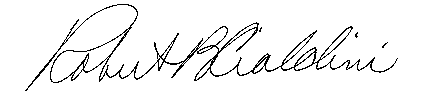 Robert B Cialdini